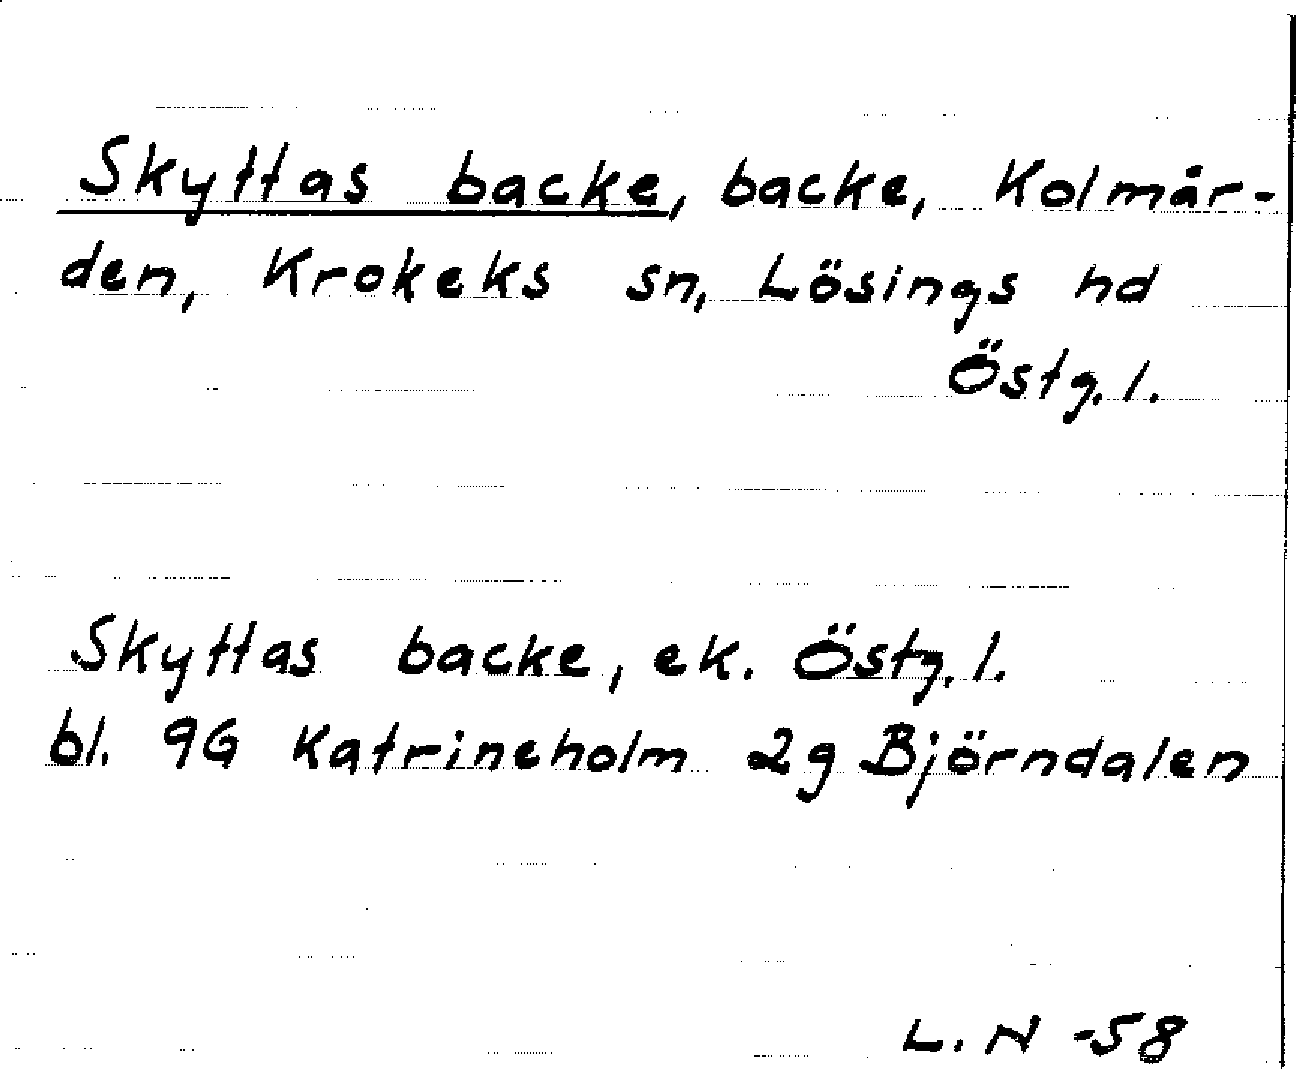 Skyttas backe, backe, Kolmår-
den, Krokeks sn, Lösings hd
Östg.l.
Skyttas backe, ek. Östg.l.
bl. 9G Katrineholm 2g Björndalen
L.N -58